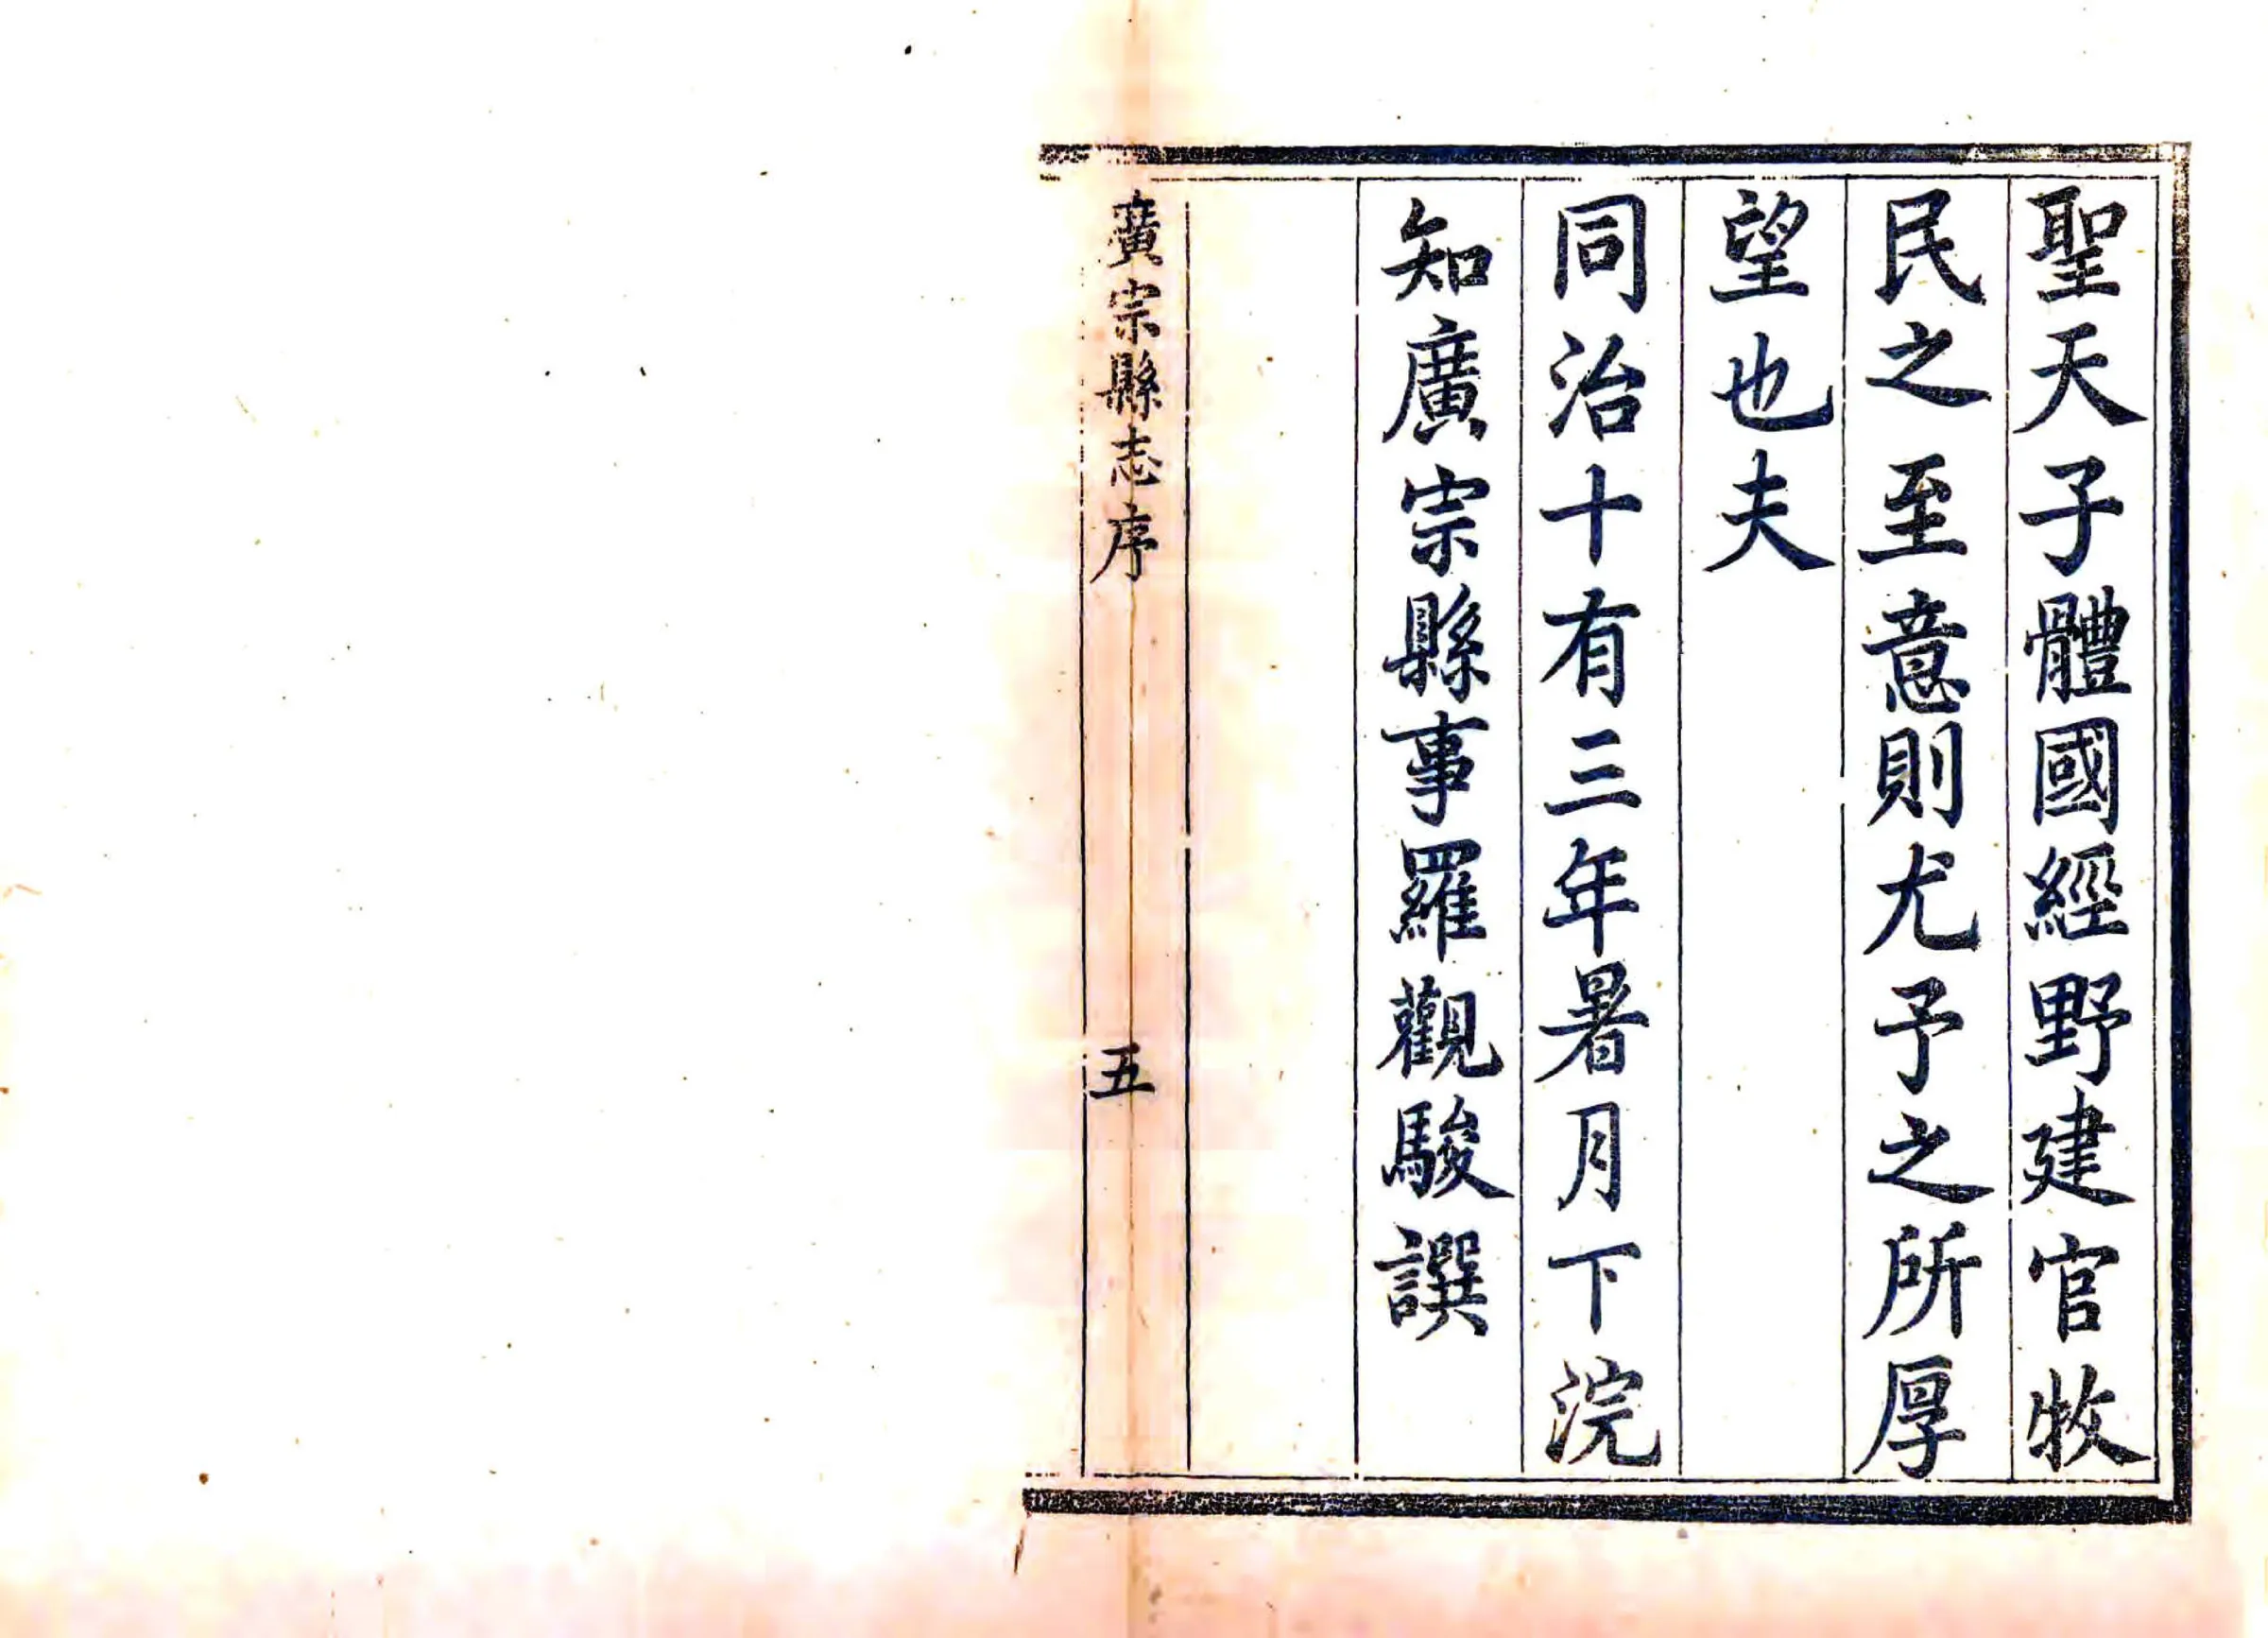 聖天子體國經野建官牧
民之至意則尤予之所厚
望也夫
同治十有三年暑月下浣
知廣宗縣事羅觀駿譔
廣宗縣志序
五